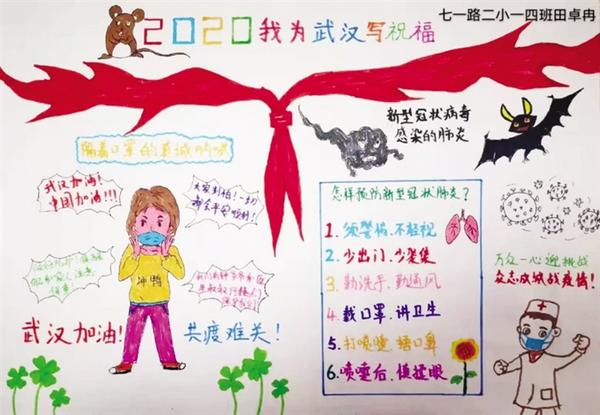 七一路二小一四班田卓冉
2020我为武汉写祝福
新型冠状病毒
感染的肺炎
隔着口罩的真诚呐喊
武汉加油!
中国加油!!!
大家别怕!一切
都会平安顺利!
冲鸭
武汉加油! 共渡难关!
怎样预防新型冠状肺炎?
1. 须警惕、不轻视
2. 少出门、少聚集
3. 勤洗手、勤通风
4. 戴口罩、讲卫生
5. 打喷嚏、捂口鼻
6. 喷嚏后、慎揉眼
万众一心迎挑战
众志成城战疫情!